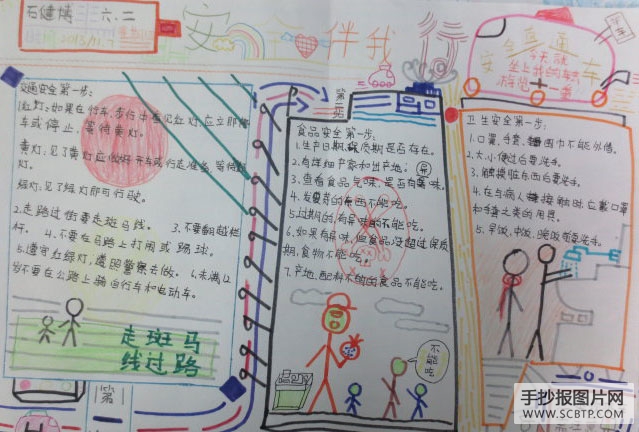 石健博 六、二
时间:2015.11.7
安全伴我行
安全直通车
今天就
坐上我的车
游览一番
交通安全第一步:
红灯:如果在行车、步行中看见红灯,应立即停
车或停止,等待黄灯。
黄灯:见了黄灯应做好开车或行走准备,等待
绿灯。
绿灯:见了绿灯即可行驶。
2.走路过街要走斑马线。 3.不要翻越栏
杆。 4.不要在马路上打闹或踢球。
5.遵守红绿灯,遵照警察去做。 6.未满12
岁不要在公路上骑自行车和电动车。
走斑马
线过路
第
第二站
食品安全第一步:
1.生产日期,保质期是否存在。
2.有详细产家和出产地;
3.查看食品气味,是否有异味。
4.发霉者的东西不能吃。
5.过期的,有异味的不能吃。
6.如果有异味,但食品没超过保质
期,食物不能吃。
7.产地,配料不明的食品不能吃。
卫生安全第一步:
1.口罩、手套、围巾不能外借。
2.大、小便过后要洗手。
3.触摸脏东西后要洗手。
4.在与病人接触时应戴口罩
和手套之类的用具。
5.早饭、中饭、晚饭前要洗手。
手抄报图片网
WWW.SCBTP.COM